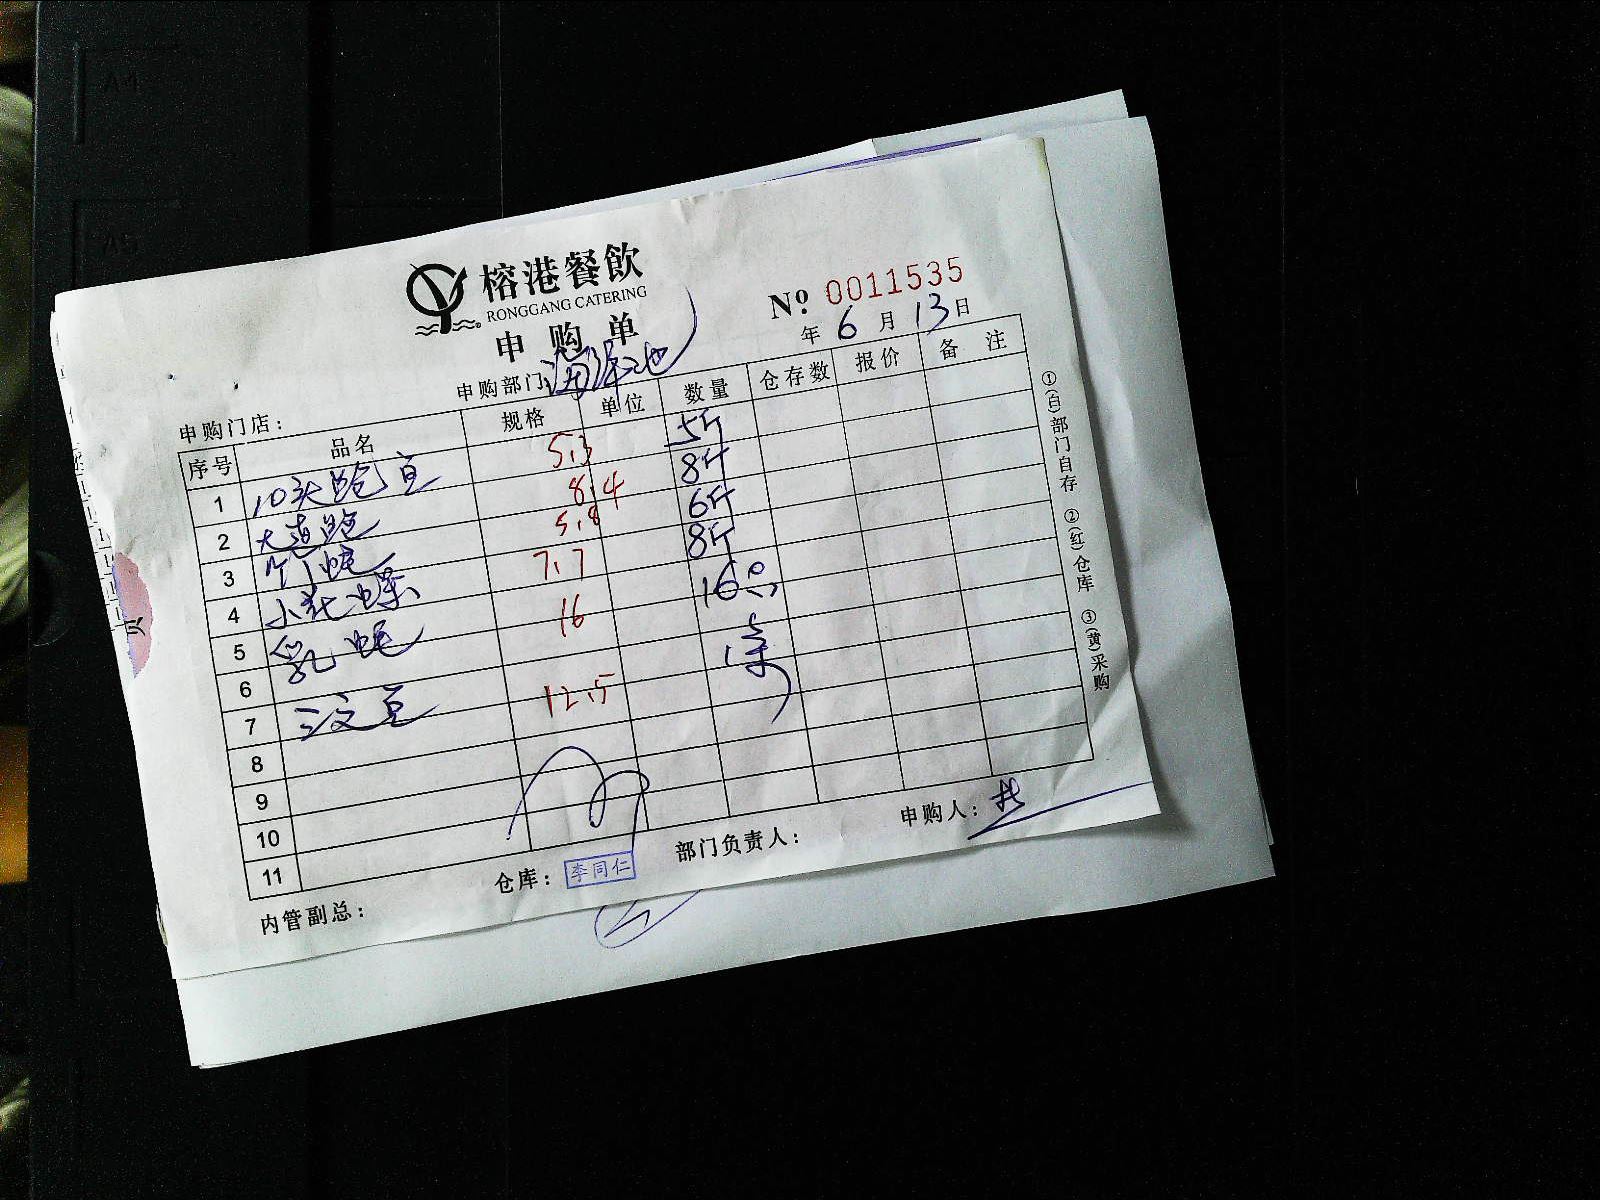 榕港餐飲
RONGGANG CATERING
申购单
№ 0011535
年 6 月 13 日
申购门店： 申购部门： 海鲜池
序号 品名 规格 单位 数量 仓存数 报价 备注
1 10头鲍 5.3 5斤
2 大连鲍 8.4 8斤
3 竹蛏 5.8 6斤
4 小花螺 7.7 8斤
5 16 16只
6
7 三文鱼 12.5 1条
8
9
10
11
内管副总： 仓库： 李同仁 部门负责人： 申购人：
①(白)部门自存 ②(红)仓库 ③(黄)采购
A4
A5